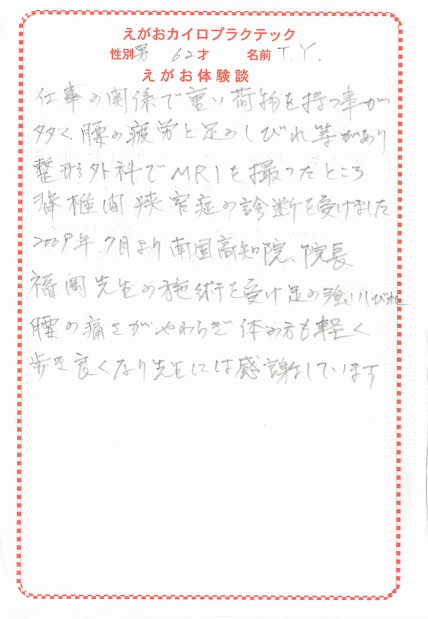 えがおカイロプラクテック
性別 男 62才 名前 T.Y.
えがお体験談
仕事の関係で重い荷物を持つ事が
多く腰の疲労と足のしびれ等があり
整形外科でMRIを撮ったところ
脊椎間狭窄症の診断を受けました
2009年7月より南国高知院、院長
福岡先生の施術を受け足の強いしびれ
腰の痛さがやわらぎ体の方も軽く
歩き良くなり先生には感謝しています